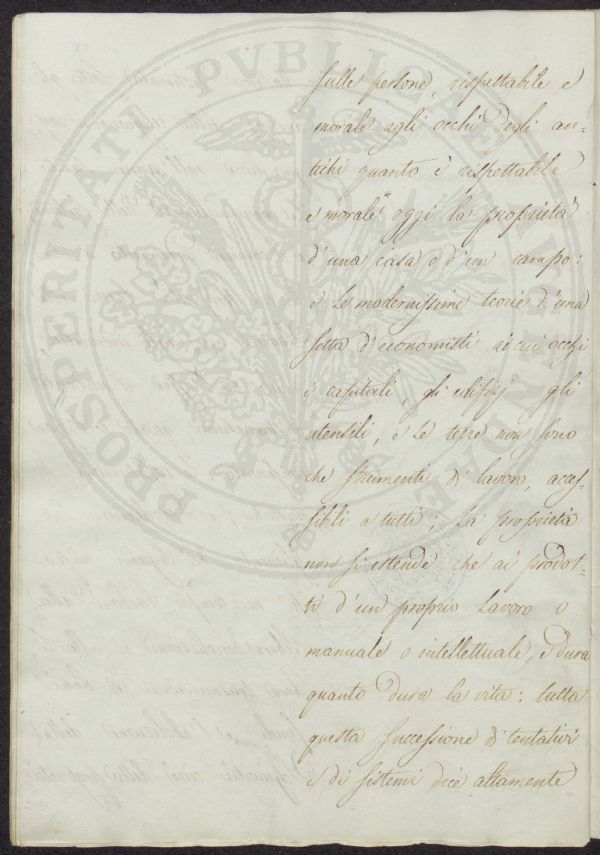 sulle persone, rispettabile e
morale agli occhi degli an=
tichi quanto è rispettabile
e morale oggi la proprietà
d'una casa o d'un campo:
e le modernissime teorie d'una
setta d'economisti ai cui occhi
i capitali, gli edifizj gli
utensili, e le terre non sono
che strumenti di lavoro, acces=
sibili a tutti; la proprietà
non si estende che ai prodot=
ti d'un proprio lavoro o
manuale o intellettuale, e dura
quanto dura la vita: tutta
questa successione di tentativi
e di sistemi dice altamente
PROSPERITATI PVBLICAE